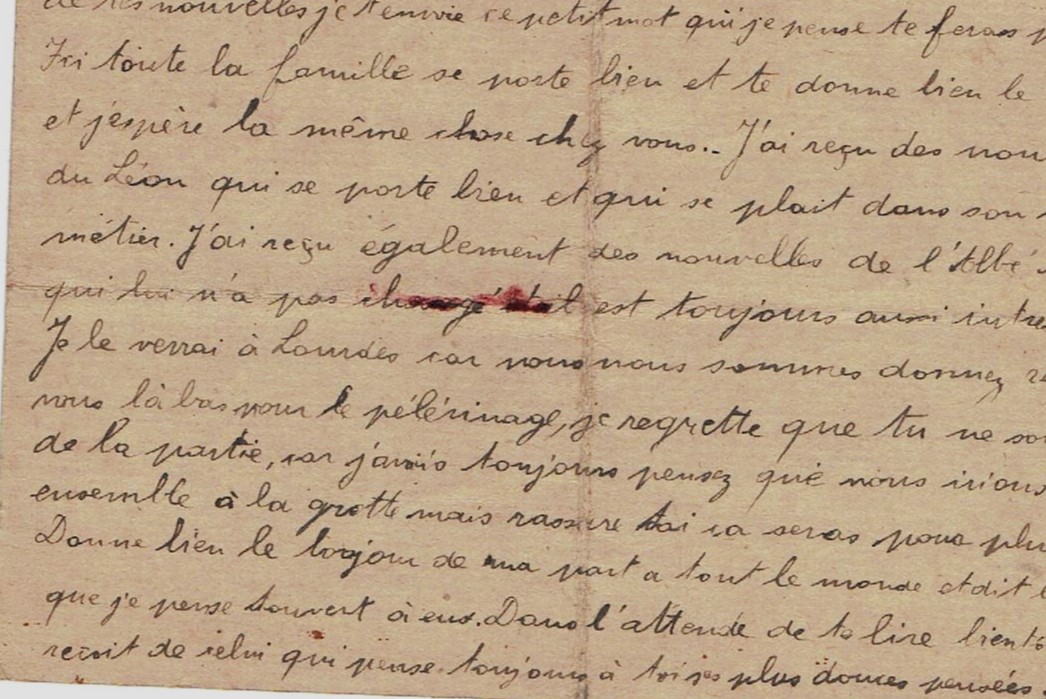 de tes nouvelles je t'envoie ce petit mot qui je pense te feras
Ici toute la famille se porte bien et te donne bien le
et j'éspère la même chose chez vous.. J'ai reçu des nou
du Léon qui se porte bien et qui se plait dans son
métier. J'ai reçu également des nouvelles de l'Abbé
qui lui n'a pas changé il est toujours aussi intre
Je le verrai à Lourdes car nous nous sommes donnez
vous là bas pour le pélérinage, je regrette que tu ne soi
de la partie, car j'avais toujours pensez que nous irions
ensemble à la grotte mais rassure toi ca seras pour plu
Donne bien le bonjour de ma part a tout le monde et dit
que je pense souvent à eux. Dans l'attende de te lire bientô
reçoit de celui qui pense toujours à toi ses plus douces pensées